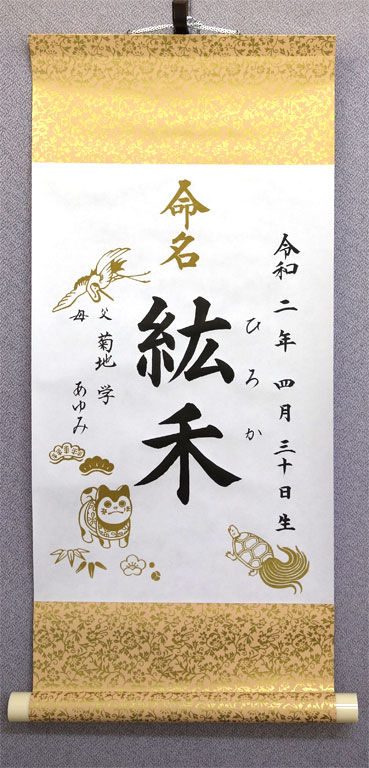 令和二年四月三十日生
命名
紘禾
ひろか
父 菊地 学
母 あゆみ